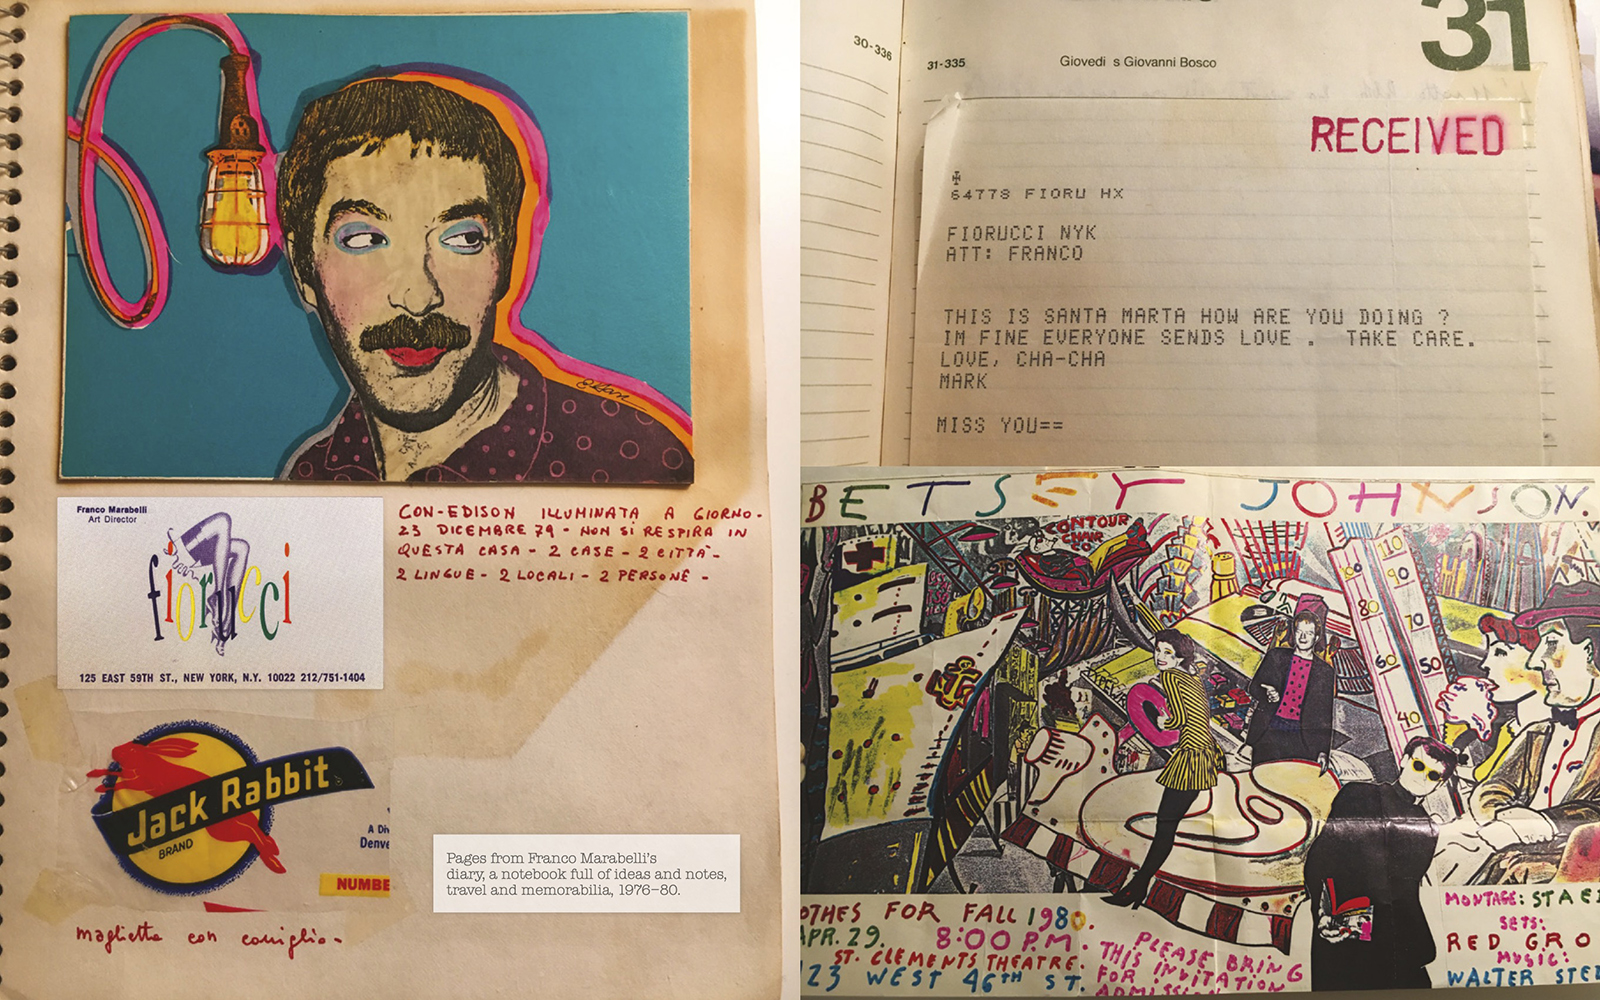 Franco Marabelli
Art Director
fiorucci
125 EAST 59TH ST., NEW YORK, N.Y. 10022 212/751-1404
CON-EDISON ILLUMINATA A GIORNO -
23 DICEMBRE 79 - NON SI RESPIRA IN
QUESTA CASA - 2 CASE - 2 CITTÀ -
2 LINGUE - 2 LOCALI - 2 PERSONE -
Jack Rabbit
BRAND
A Div
Denve
NUMBE
maglietta con coniglio -
Pages from Franco Marabelli's
diary, a notebook full of ideas and notes,
travel and memorabilia, 1976–80.
30-336
31-335
Giovedì s Giovanni Bosco
31
RECEIVED
64778 FIORU HX
FIORUCCI NYK
ATT: FRANCO
THIS IS SANTA MARTA HOW ARE YOU DOING ?
IM FINE EVERYONE SENDS LOVE . TAKE CARE.
LOVE, CHA-CHA
MARK
MISS YOU==
BETSEY JOHNSON.
CONTOUR
CHAIR
CO.
110
100 90
80 70
60 50
40
OTHES FOR FALL 1980.
APR. 29. 8:00 P.M.
ST. CLEMENTS THEATRE.
23 WEST 46TH ST.
PLEASE BRING
THIS INVITATION
FOR
ADMISSION
MONTAGE: STAE
SETS:
RED GRO
MUSIC:
WALTER STE